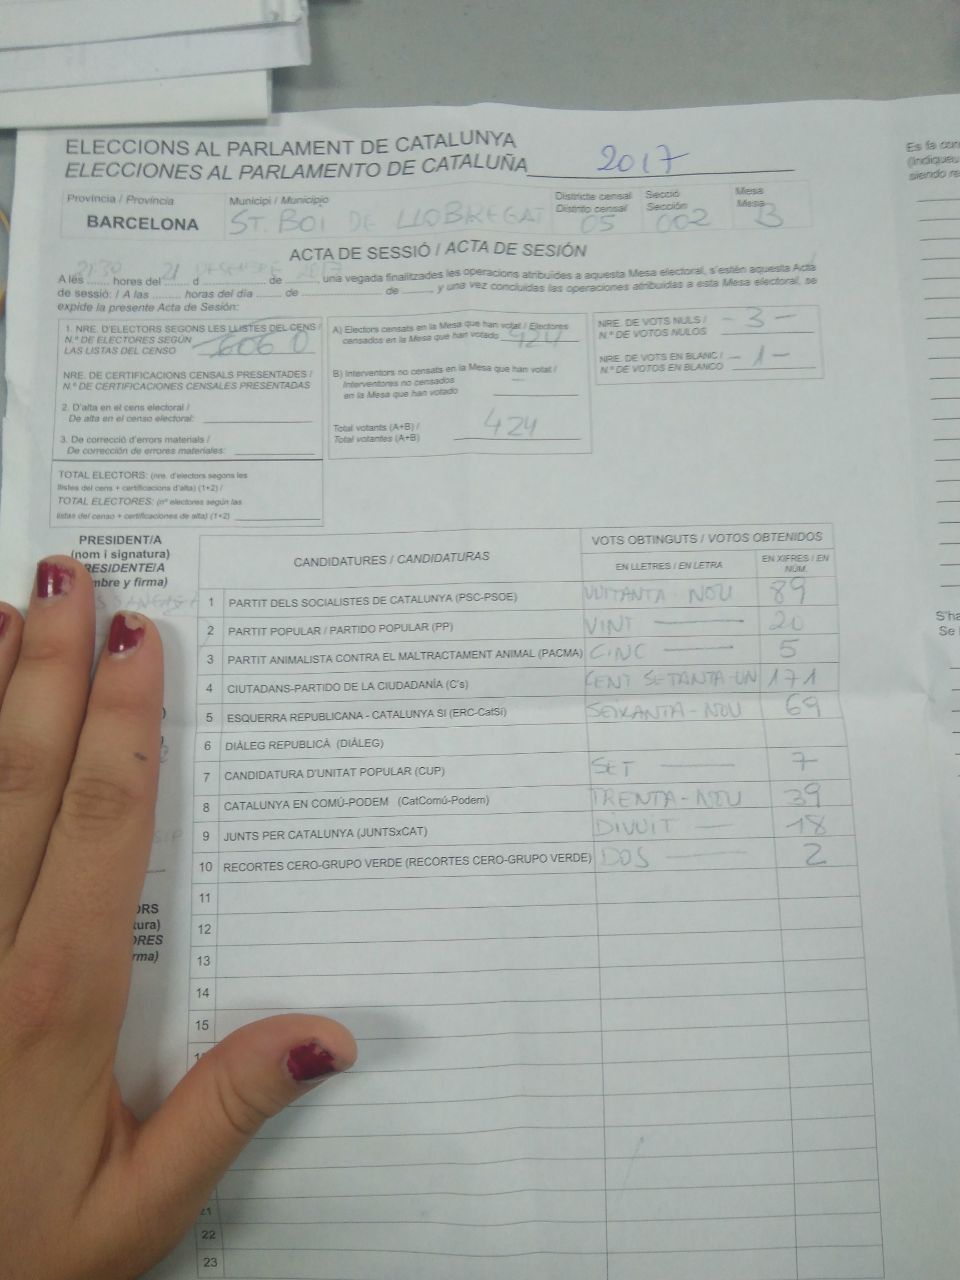 ELECCIONS AL PARLAMENT DE CATALUNYA
ELECCIONES AL PARLAMENTO DE CATALUÑA 2017
Província / Provincia
BARCELONA
Municipi / Municipio
ST. BOI DE LLOBREGAT
Districte censal
Distrito censal
05
Secció
Sección
002
Mesa
Mesa
B
ACTA DE SESSIÓ / ACTA DE SESIÓN
21:30 21 DESEMBRE 2017
A les ........ hores del ........ d .................. de .........., una vegada finalitzades les operacions atribuïdes a aquesta Mesa electoral, s'estén aquesta Acta
de sessió: / A las ......... horas del día ........ de ........................ de .......... y una vez concluidas las operaciones atribuidas a esta Mesa electoral, se
expide la presente Acta de Sesión:
1. NRE. D'ELECTORS SEGONS LES LLISTES DEL CENS /
N.º DE ELECTORES SEGÚN
LAS LISTAS DEL CENSO
NRE. DE CERTIFICACIONS CENSALS PRESENTADES /
N.º DE CERTIFICACIONES CENSALES PRESENTADAS
2. D'alta en el cens electoral /
De alta en el censo electoral:
3. De correcció d'errors materials /
De corrección de errores materiales:
TOTAL ELECTORS: (nre. d'electors segons les
llistes del cens + certificacions d'alta) (1+2) /
TOTAL ELECTORES: (nº electores según las
listas del censo + certificaciones de alta) (1+2)
A) Electors censats en la Mesa que han votat / Electores
censados en la Mesa que han votado 424
B) Interventors no censats en la Mesa que han votat /
Interventores no censados
en la Mesa que han votado —
Total votants (A+B) /
Total votantes (A+B) 424
NRE. DE VOTS NULS /
N.º DE VOTOS NULOS - 3 -
NRE. DE VOTS EN BLANC /
N.º DE VOTOS EN BLANCO - 1 -
PRESIDENT/A
(nom i signatura)
RESIDENTE/A
mbre y firma)
CANDIDATURES / CANDIDATURAS
VOTS OBTINGUTS / VOTOS OBTENIDOS
EN LLETRES / EN LETRA
EN XIFRES / EN NÚM.
1 PARTIT DELS SOCIALISTES DE CATALUNYA (PSC-PSOE) VUITANTA-NOU 89
2 PARTIT POPULAR / PARTIDO POPULAR (PP) VINT 20
3 PARTIT ANIMALISTA CONTRA EL MALTRACTAMENT ANIMAL (PACMA) CINC 5
4 CIUTADANS-PARTIDO DE LA CIUDADANÍA (C's) CENT SETANTA-UN 171
5 ESQUERRA REPUBLICANA - CATALUNYA SÍ (ERC-CatSí) SEIXANTA-NOU 69
6 DIÀLEG REPUBLICÀ (DIÀLEG)
7 CANDIDATURA D'UNITAT POPULAR (CUP) SET 7
8 CATALUNYA EN COMÚ-PODEM (CatComú-Podem) TRENTA-NOU 39
9 JUNTS PER CATALUNYA (JUNTSxCAT) DIVUIT 18
10 RECORTES CERO-GRUPO VERDE (RECORTES CERO-GRUPO VERDE) DOS 2
11
12
13
14
15
21
22
23
ORS
tura)
ORES
rma)
Es fa con
(Indiqueu
siendo re
S'ha
Se